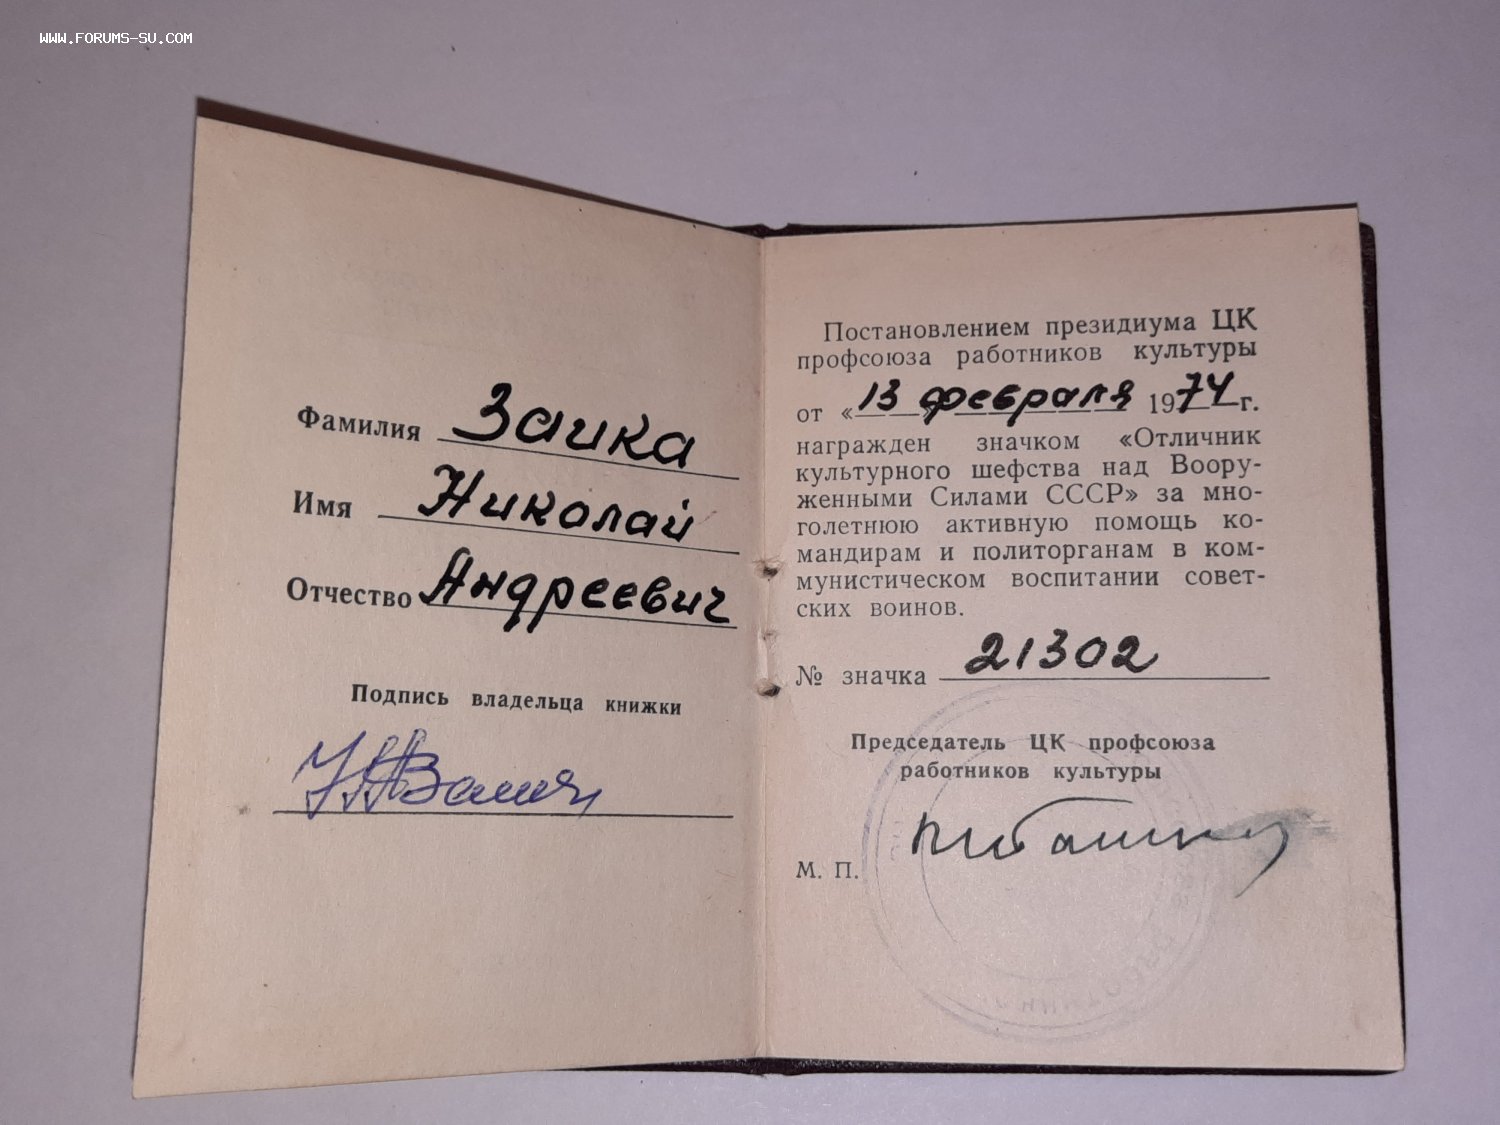 WWW.FORUMS-SU.COM
Фамилия Заика
Имя Николай
Отчество Андреевич
Подпись владельца книжки
Постановлением президиума ЦК
профсоюза работников культуры
от «13» февраля 1974 г.
награжден значком «Отличник
культурного шефства над Воору-
женными Силами СССР» за мно-
голетнюю активную помощь ко-
мандирам и политорганам в ком-
мунистическом воспитании совет-
ских воинов.
№ значка 21302
Председатель ЦК профсоюза
работников культуры
М. П.